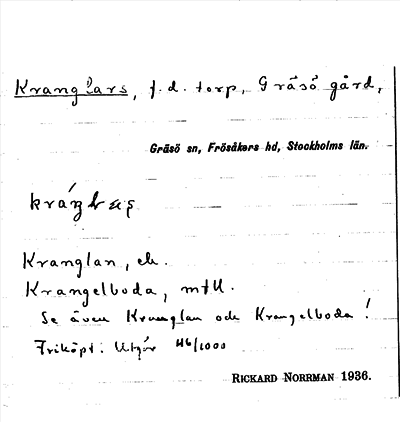 Kranglars, f.d. torp, Gräsö gård,
Gräsö sn, Frösåkers hd, Stockholms län.
Kranglan,
Krangelboda, mtll.
Se även Kranglan och Krangelboda!
Friköpt: Utgör 46/1000
RICKARD NORRMAN 1936.